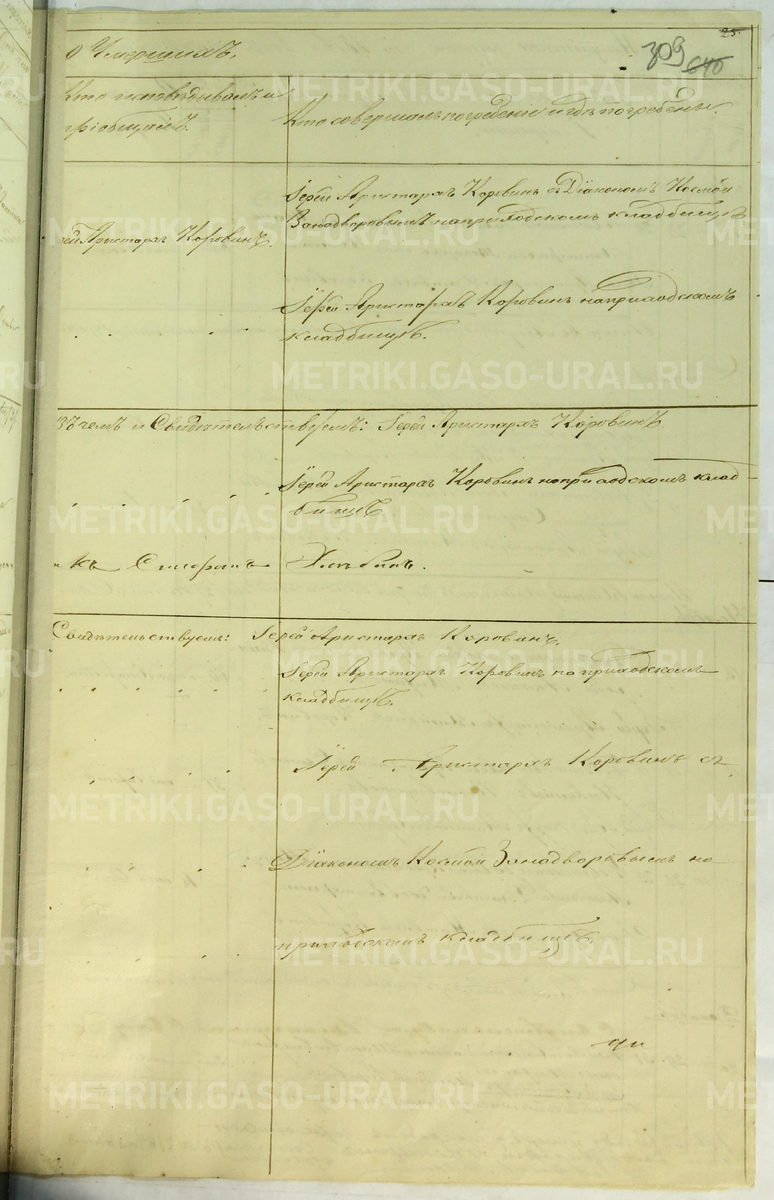 25.
309 640
о Умершихъ.
Кто исповѣдывалъ и
пріобщалъ.
Кто совершалъ погребеніе и гдѣ погребены.
Іерей Аристархъ Коровинъ съ Діакономъ Космою
Занадворовымъ на приходскомъ кладбищѣ
рей Аристархъ Коровинъ.
Іерей Аристархъ Коровинъ на приходскомъ
кладбищѣ.
въ чемъ и Свидѣтельствуемъ: Іерей Аристархъ Коровинъ
Іерей Аристархъ Коровинъ на приходскомъ клад-
бищѣ
къ Стефанъ Хлѣбинъ.
Свидѣтельствуемъ: Іерей Аристархъ Коровинъ.
Іерей Аристархъ Коровинъ на приходскомъ
кладбищѣ.
Іерей Аристархъ Коровинъ съ
Діакономъ Космою Занадворовымъ на
приходскомъ кладбищѣ.
METRIKI.GASO-URAL.RU